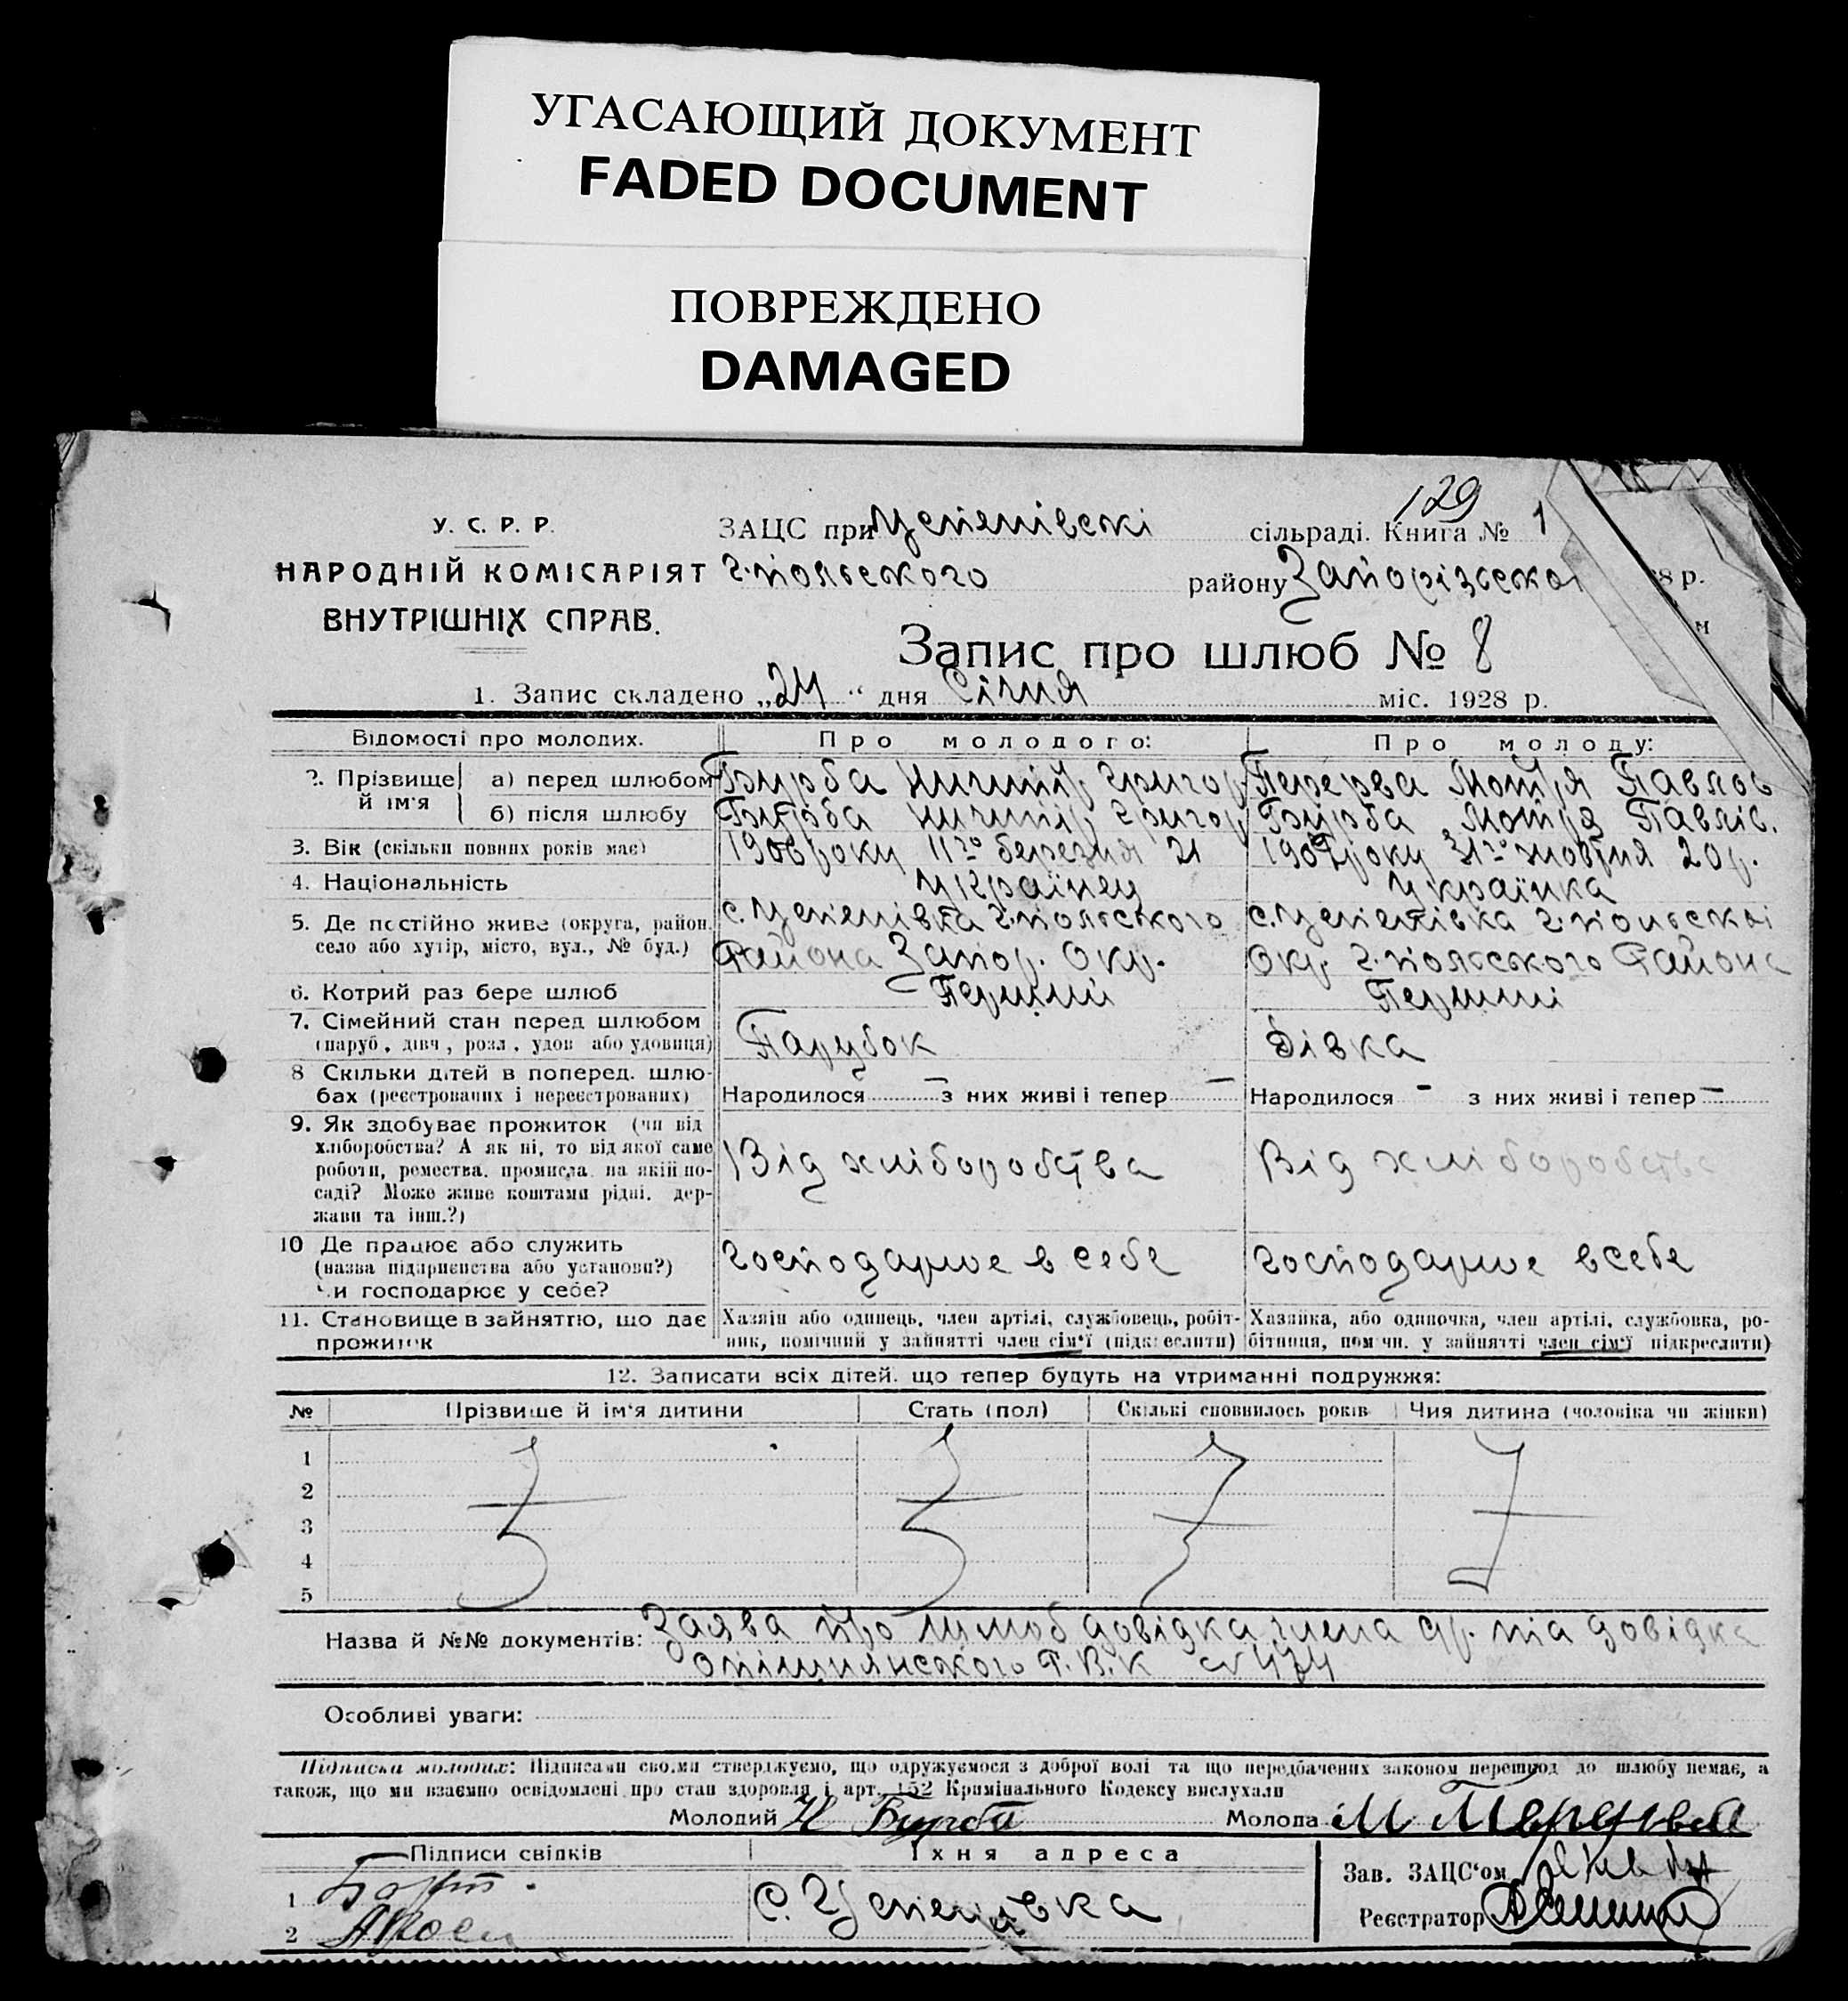 УГАСАЮЩИЙ ДОКУМЕНТ
FADED DOCUMENT
ПОВРЕЖДЕНО
DAMAGED
129
У. С. Р. Р.
НАРОДНІЙ КОМІСАРІЯТ
ВНУТРІШНІХ СПРАВ.
ЗАЦС при Успенівскі сільраді. Книга № 1
г.польского району Запорізько
8 р.
Запис про шлюб № 8
1. Запис складено „24“ дня Січня міс. 1928 р.
Відомості про молодих. Про молодого: Про молоду:
2. Прізвище й ім'я а) перед шлюбом Бурба Ничипір Григор Перерва Мотря Павлов
б) після шлюбу Бурба Ничипір Григор Бурба Мотря Павлів.
3. Вік (скільки повних років має) 1906 року 11го березня 21 1907 року 31го жовтня 20 р.
4. Національність Українец Українка
5. Де постійно живе (округа, район, село або хутір, місто, вул., № буд.)
с. Успенівка г.польского Района Запор. Окр.
с. Успенівка г.польскоі Окр. г.польського Района
6. Котрий раз бере шлюб Перший Перший
7. Сімейний стан перед шлюбом (паруб., дівч., розл., удов. або удовиця) Парубок Дівка
8 Скільки дітей в поперед. шлюбах (реєстрованих і нереєстрованих) Народилося — з них живі і тепер — Народилося - з них живі і тепер —
9. Як здобуває прожиток (чи від хліборобства? А як ні, то від якої саме роботи, ремества, промисла, на якій посаді? Може живе коштами рідні, держави та інш.?)
Від хліборобства Від хліборобства
10 Де працює або служить (назва підприємства або установи?) Чи господарює у себе?
господарює в себе господарює всебе
11. Становище в зайняттю, що дає прожиток
Хазяїн або одинець, член артілі, службовець, робітник, помічний у зайнятті член сім'ї (підкреслити)
Хазяйка, або одиночка, член артілі, службовка, робітниця, помічн. у зайнятті член сім'ї підкреслити)
12. Записати всіх дітей, що тепер будуть на утриманні подружжя:
№ Прізвище й ім'я дитини Стать (пол) Скількі сповнилось років Чия дитина (чоловіка чи жінки)
1
2
3
4
5
Назва й №№ документів: Заява про шлюб довідка члена др. та довідка
Р.В.К № 474
Особливі уваги:
Підписка молодих: Підписами своїми стверджуємо, що одружуємося з доброї волі та що передбачених законом перешкод до шлюбу немає, а
також, що ми взаємно освідомлені про стан здоровля і арт. 152 Кримінального Кодексу вислухали
Молодий Н Бурба Молода М Перерва
Підписи свідків Їхня адреса
1
2
с. Успенівка
Зав. ЗАЦС'ом
Реєстратор